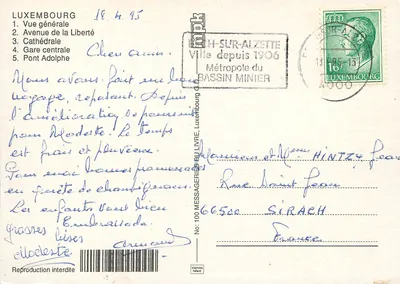 LUXEMBOURG
1. Vue générale
2. Avenue de la Liberté
3. Cathédrale
4. Gare centrale
5. Pont Adolphe
18.4.95
Chers amis.
Nous avons fait un bon
voyage, reposant. Depuis
l'amélioration
pour Modeste. Le temps
est frais et pluvieux.
promenons
en quête de champignons.
Les enfants vont bien
Embrassade
grosses bises
Armand
Modeste
Reproduction interdite
No: 100 MESSAGERIE DU LIVRE, Luxembourg
mpk
H-SUR-ALZETTE
Ville depuis 1906
Métropole du
BASSIN MINIER
SUR-ALZ
4000
16F LUXEMBOURG
Monsieur et Mme HINTZY Jean
Rue Saint Jean
66500 SIRACH
France